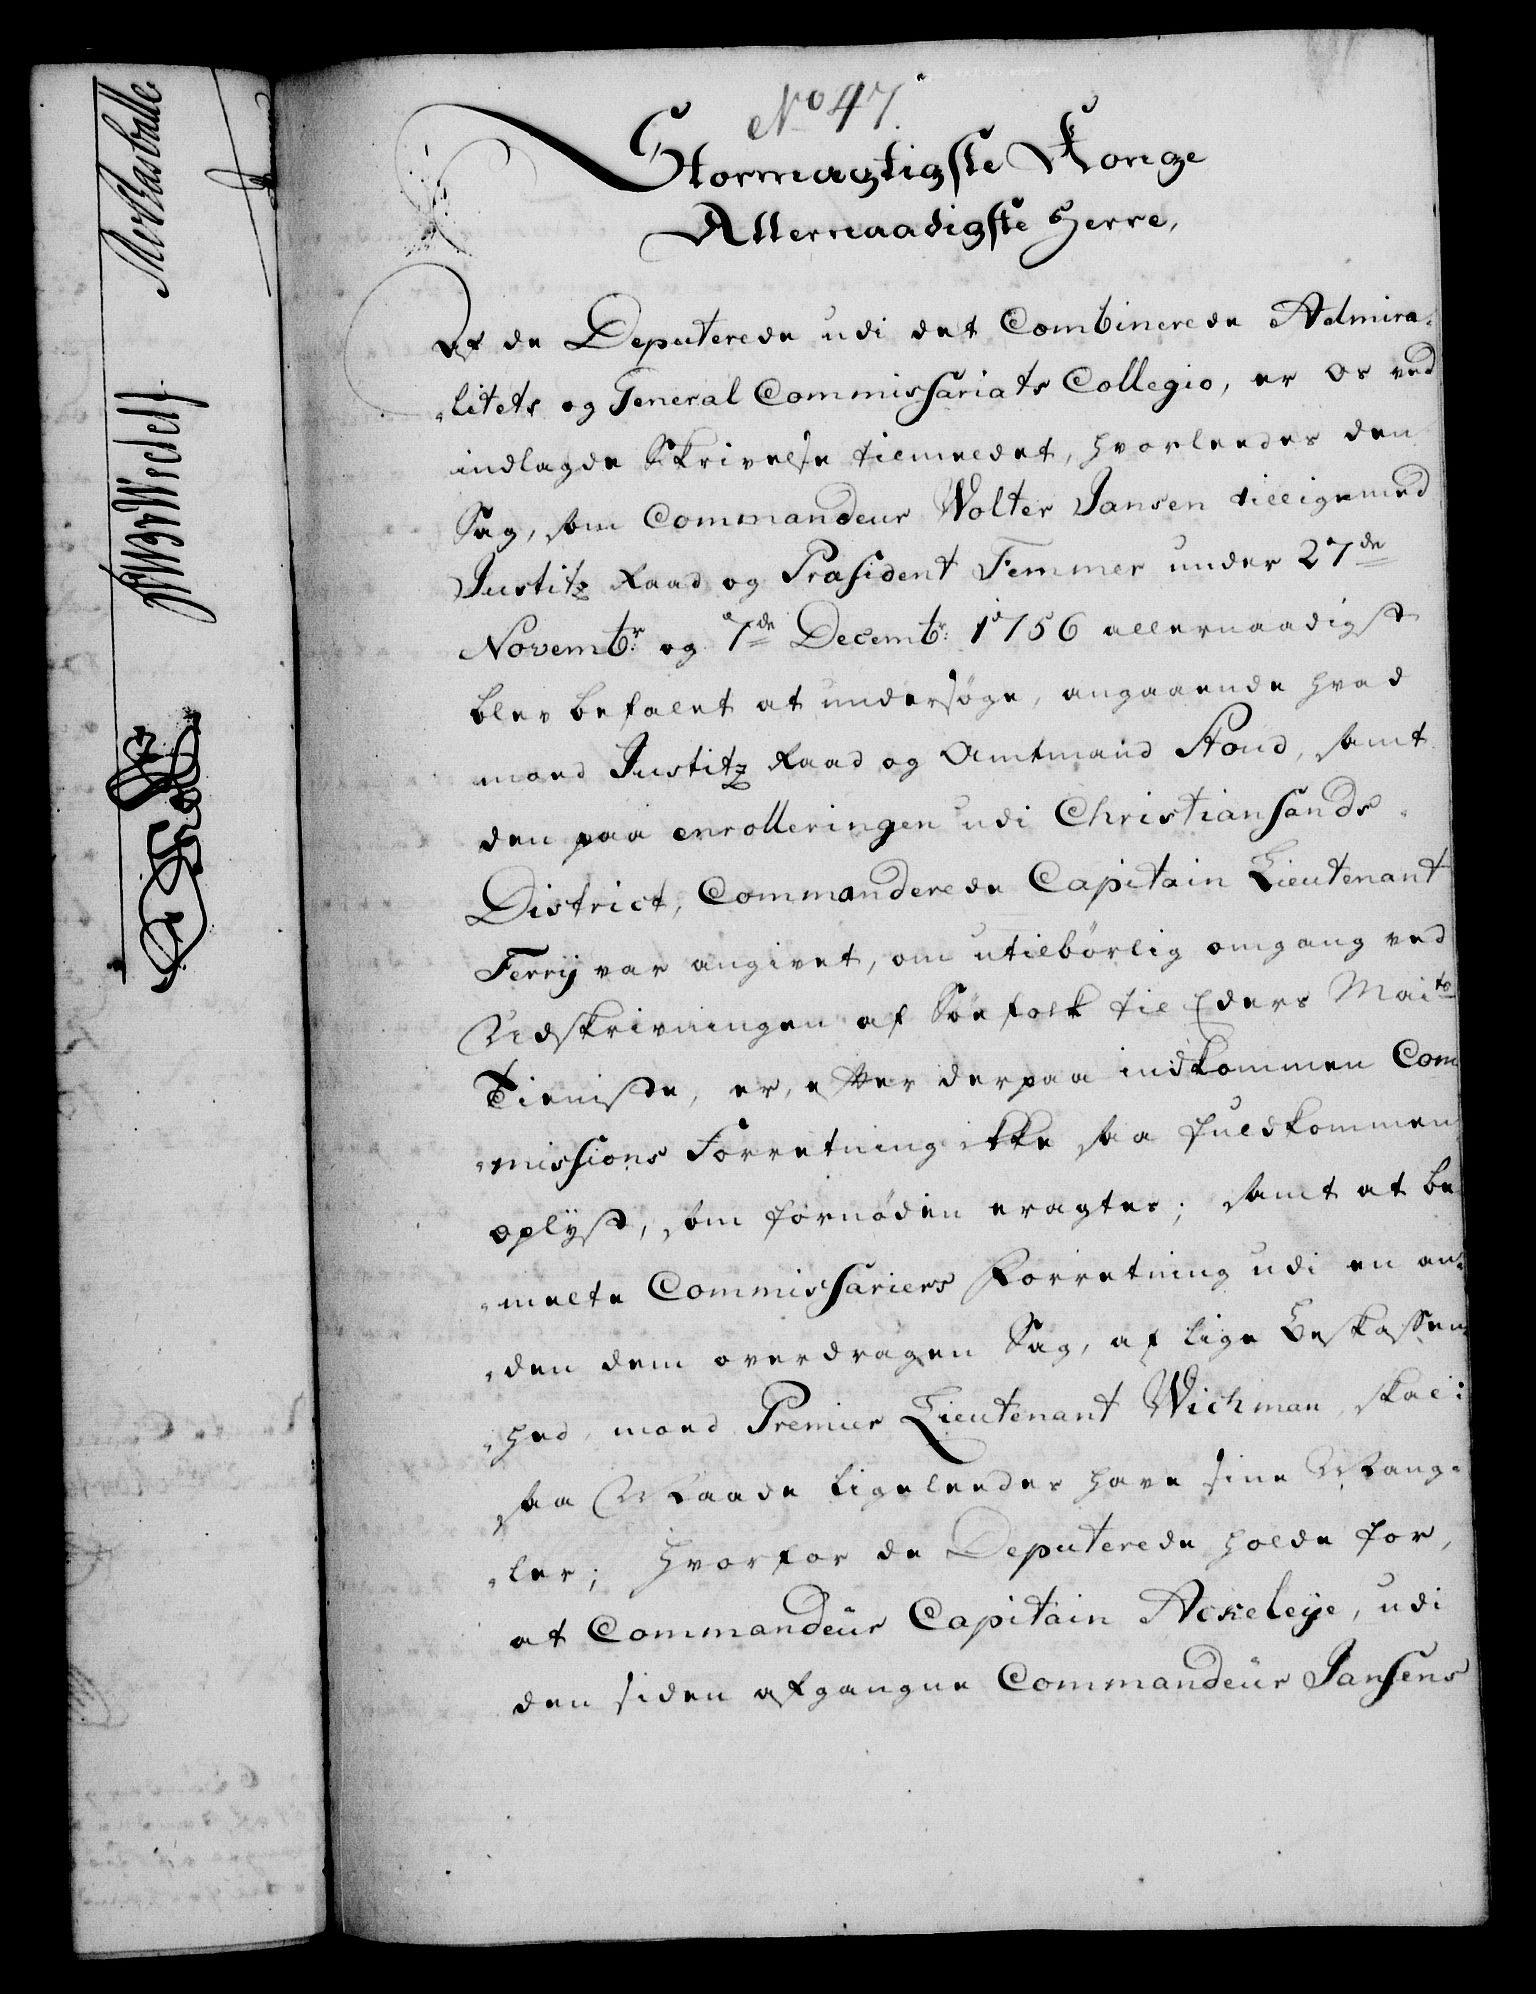 No 47.
Stormægtigste Konge
Allernaadigste Herre,
Af de Deputerede udi det Combinerede Admira-
-litets og General Commissariats Collegio, er os ved
indlagde Skrivelse tilmeldet, hvorledes den
Sag, som Commandeur Wolter Jansen tilligemed
Justitz Raad og Præsident Femmer under 27de
Novembr: og 7de Decembr: 1756 allernaadigst
blev befalet at undersøge, angaaende hvad
moed Justitz Raad og Amtmand Stoud, samt
den paa enrolleringen udi Christiansands-
District, Commanderede Capitain Lieutenant
Ferry var angivet, om utilbörlig omgang ved
Udskrivningen af Söefolk til Eders Maits
Tieniste, er, efter derpaa indkommen Com
-missions Forretning ikke saa fuldkommen
oplyst, som fornøden eragtes; samt at be
-melte Commissariers Forretning udi en an-
-den dem overdragen Sag, af lige Beskaffen-
-hed, moed Premier Lieutenant Wichman, skal i
saa Maade ligeleedes have sine Mang-
-ler; hvorfor de Deputerede holde for,
at Commandeur Capitain Ackeleye, udi
den siden afgangne Commandeur Jansens